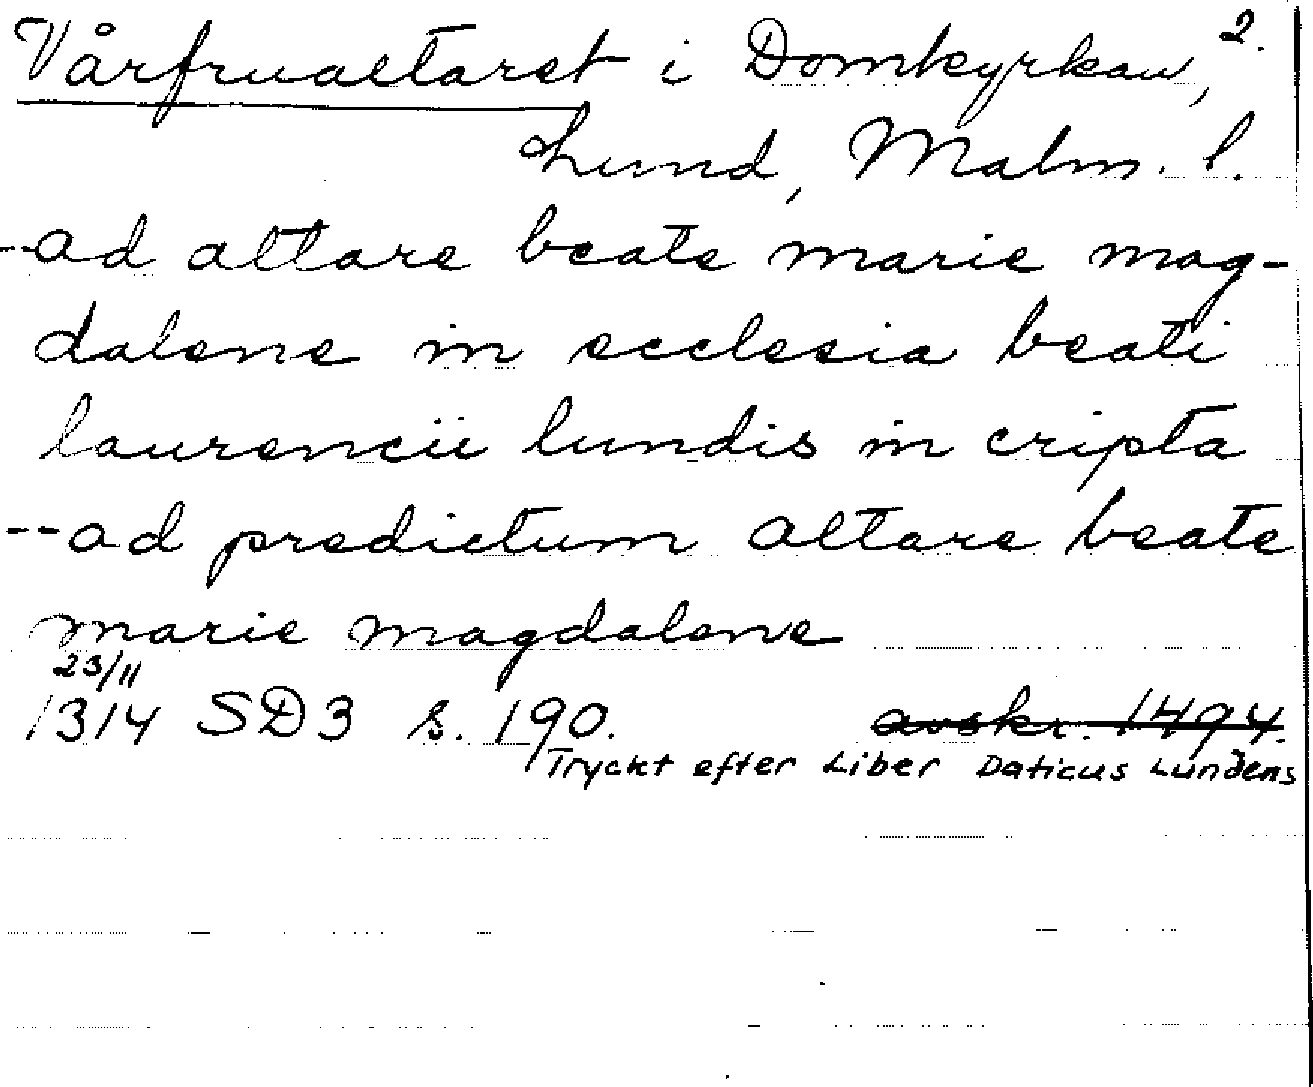 Vårfrualtaret i Domkyrkan, 2.
Lund, Malm. l.
--ad altare beate marie mag-
dalene in ecclesia beati
laurencii lundis in cripta
--ad predictum altare beate
marie magdalene
23/11
1314 SD3 s. 190. avskr. 1494.
Tryckt efter Liber Daticus Lundens